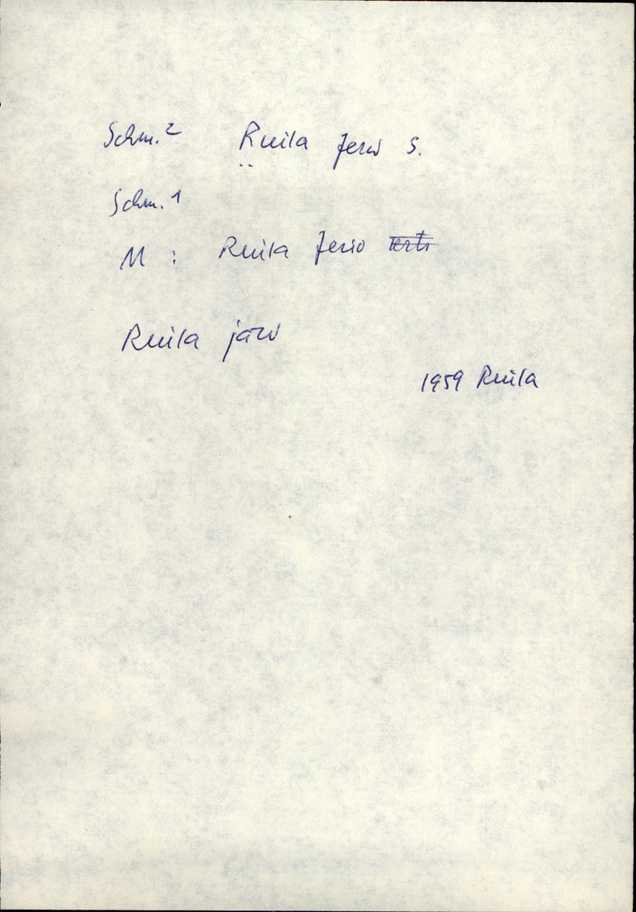 Schm.² Ruila Jerw s.
Schm.¹
M : Ruila Jerw
Ruila järv
1959 Ruila